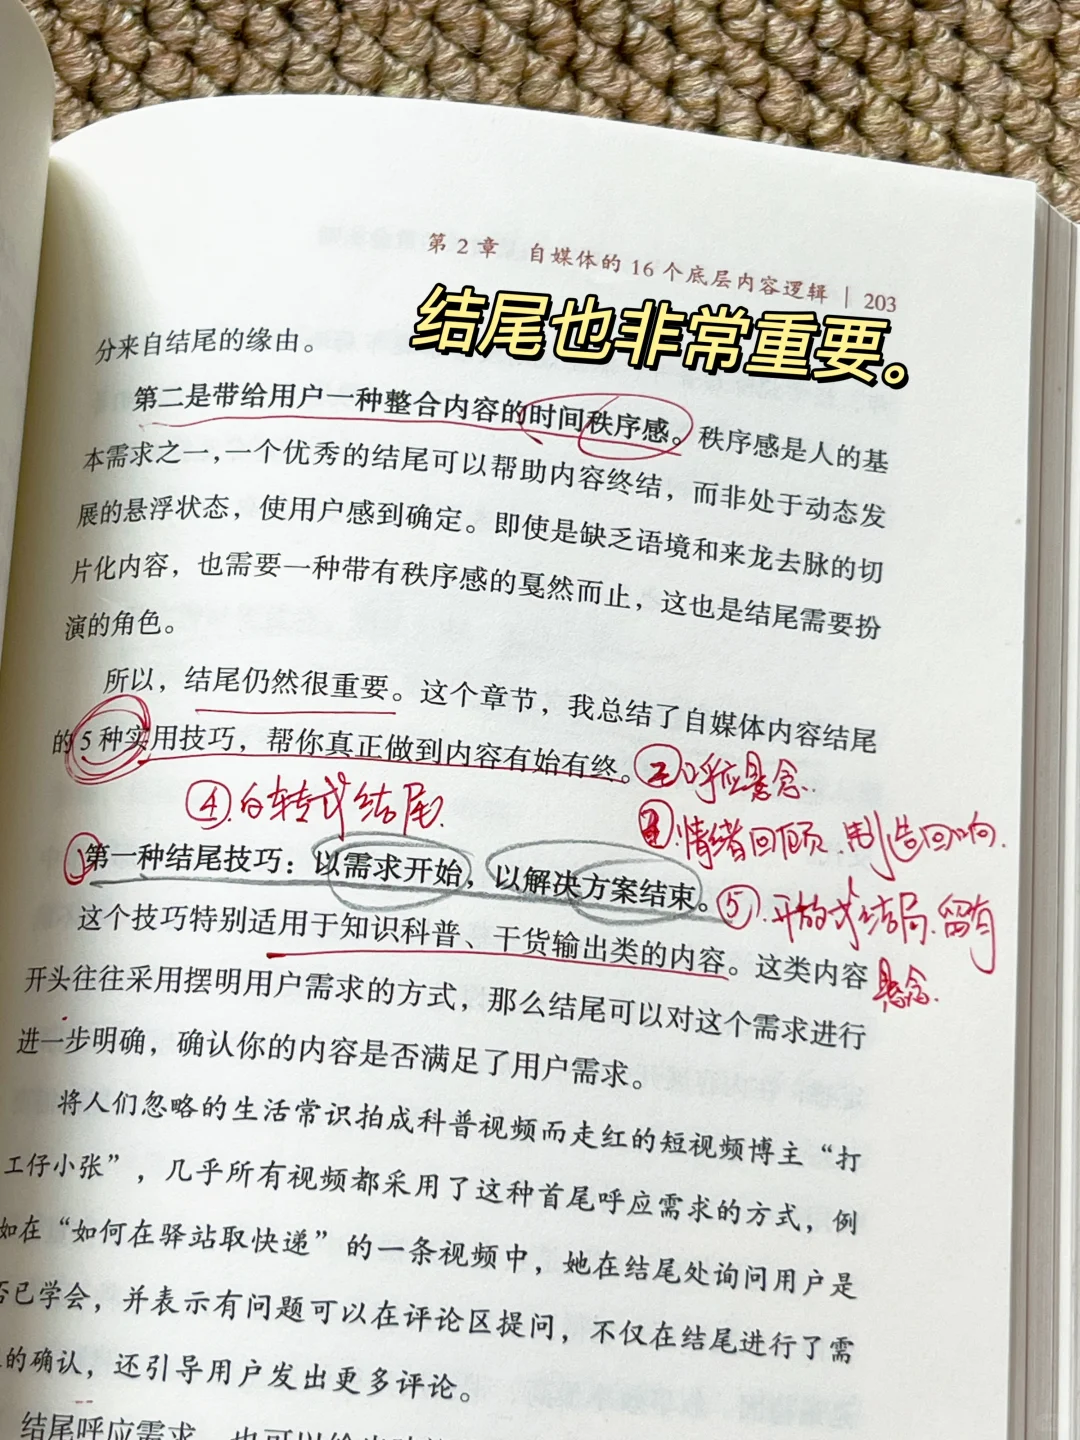 第2章 自媒体的16个底层内容逻辑 | 203
结尾也非常重要。
分来自结尾的缘由。
第二是带给用户一种整合内容的时间秩序感。秩序感是人的基
本需求之一，一个优秀的结尾可以帮助内容终结，而非处于动态发
展的悬浮状态，使用户感到确定。即使是缺乏语境和来龙去脉的切
片化内容，也需要一种带有秩序感的戛然而止，这也是结尾需要扮
演的角色。
所以，结尾仍然很重要。这个章节，我总结了自媒体内容结尾
的5种实用技巧，帮你真正做到内容有始有终。
②呼应悬念.
④.白转式结尾.
情绪回顾.制造回响.
①
第一种结尾技巧：以需求开始，以解决方案结束。
⑤.开放式结局.留有
悬念.
这个技巧特别适用于知识科普、干货输出类的内容。这类内容
开头往往采用摆明用户需求的方式，那么结尾可以对这个需求进行
进一步明确，确认你的内容是否满足了用户需求。
将人们忽略的生活常识拍成科普视频而走红的短视频博主“打
工仔小张”，几乎所有视频都采用了这种首尾呼应需求的方式，例
如在“如何在驿站取快递”的一条视频中，她在结尾处询问用户是
否已学会，并表示有问题可以在评论区提问，不仅在结尾进行了需
的确认，还引导用户发出更多评论。
结尾呼应需求